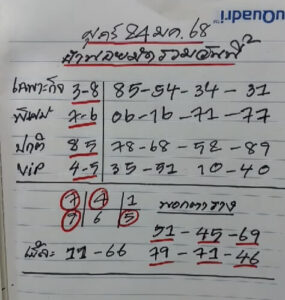 Quadri
ศุกร์ 24 ม.ค. 68
ฮานอยมัดรวมวันนี้
เฉพาะกิจ 3-8 85-54-34-31
พิเศษ 7-6 06-16-71-77
ปกติ 85 78-68-58-89
VIP 4-5 35-51 10-40
7 4 1 พอกตาราง
5 6 5 51-45-69
เบิ้ล 11-66 79-71-46